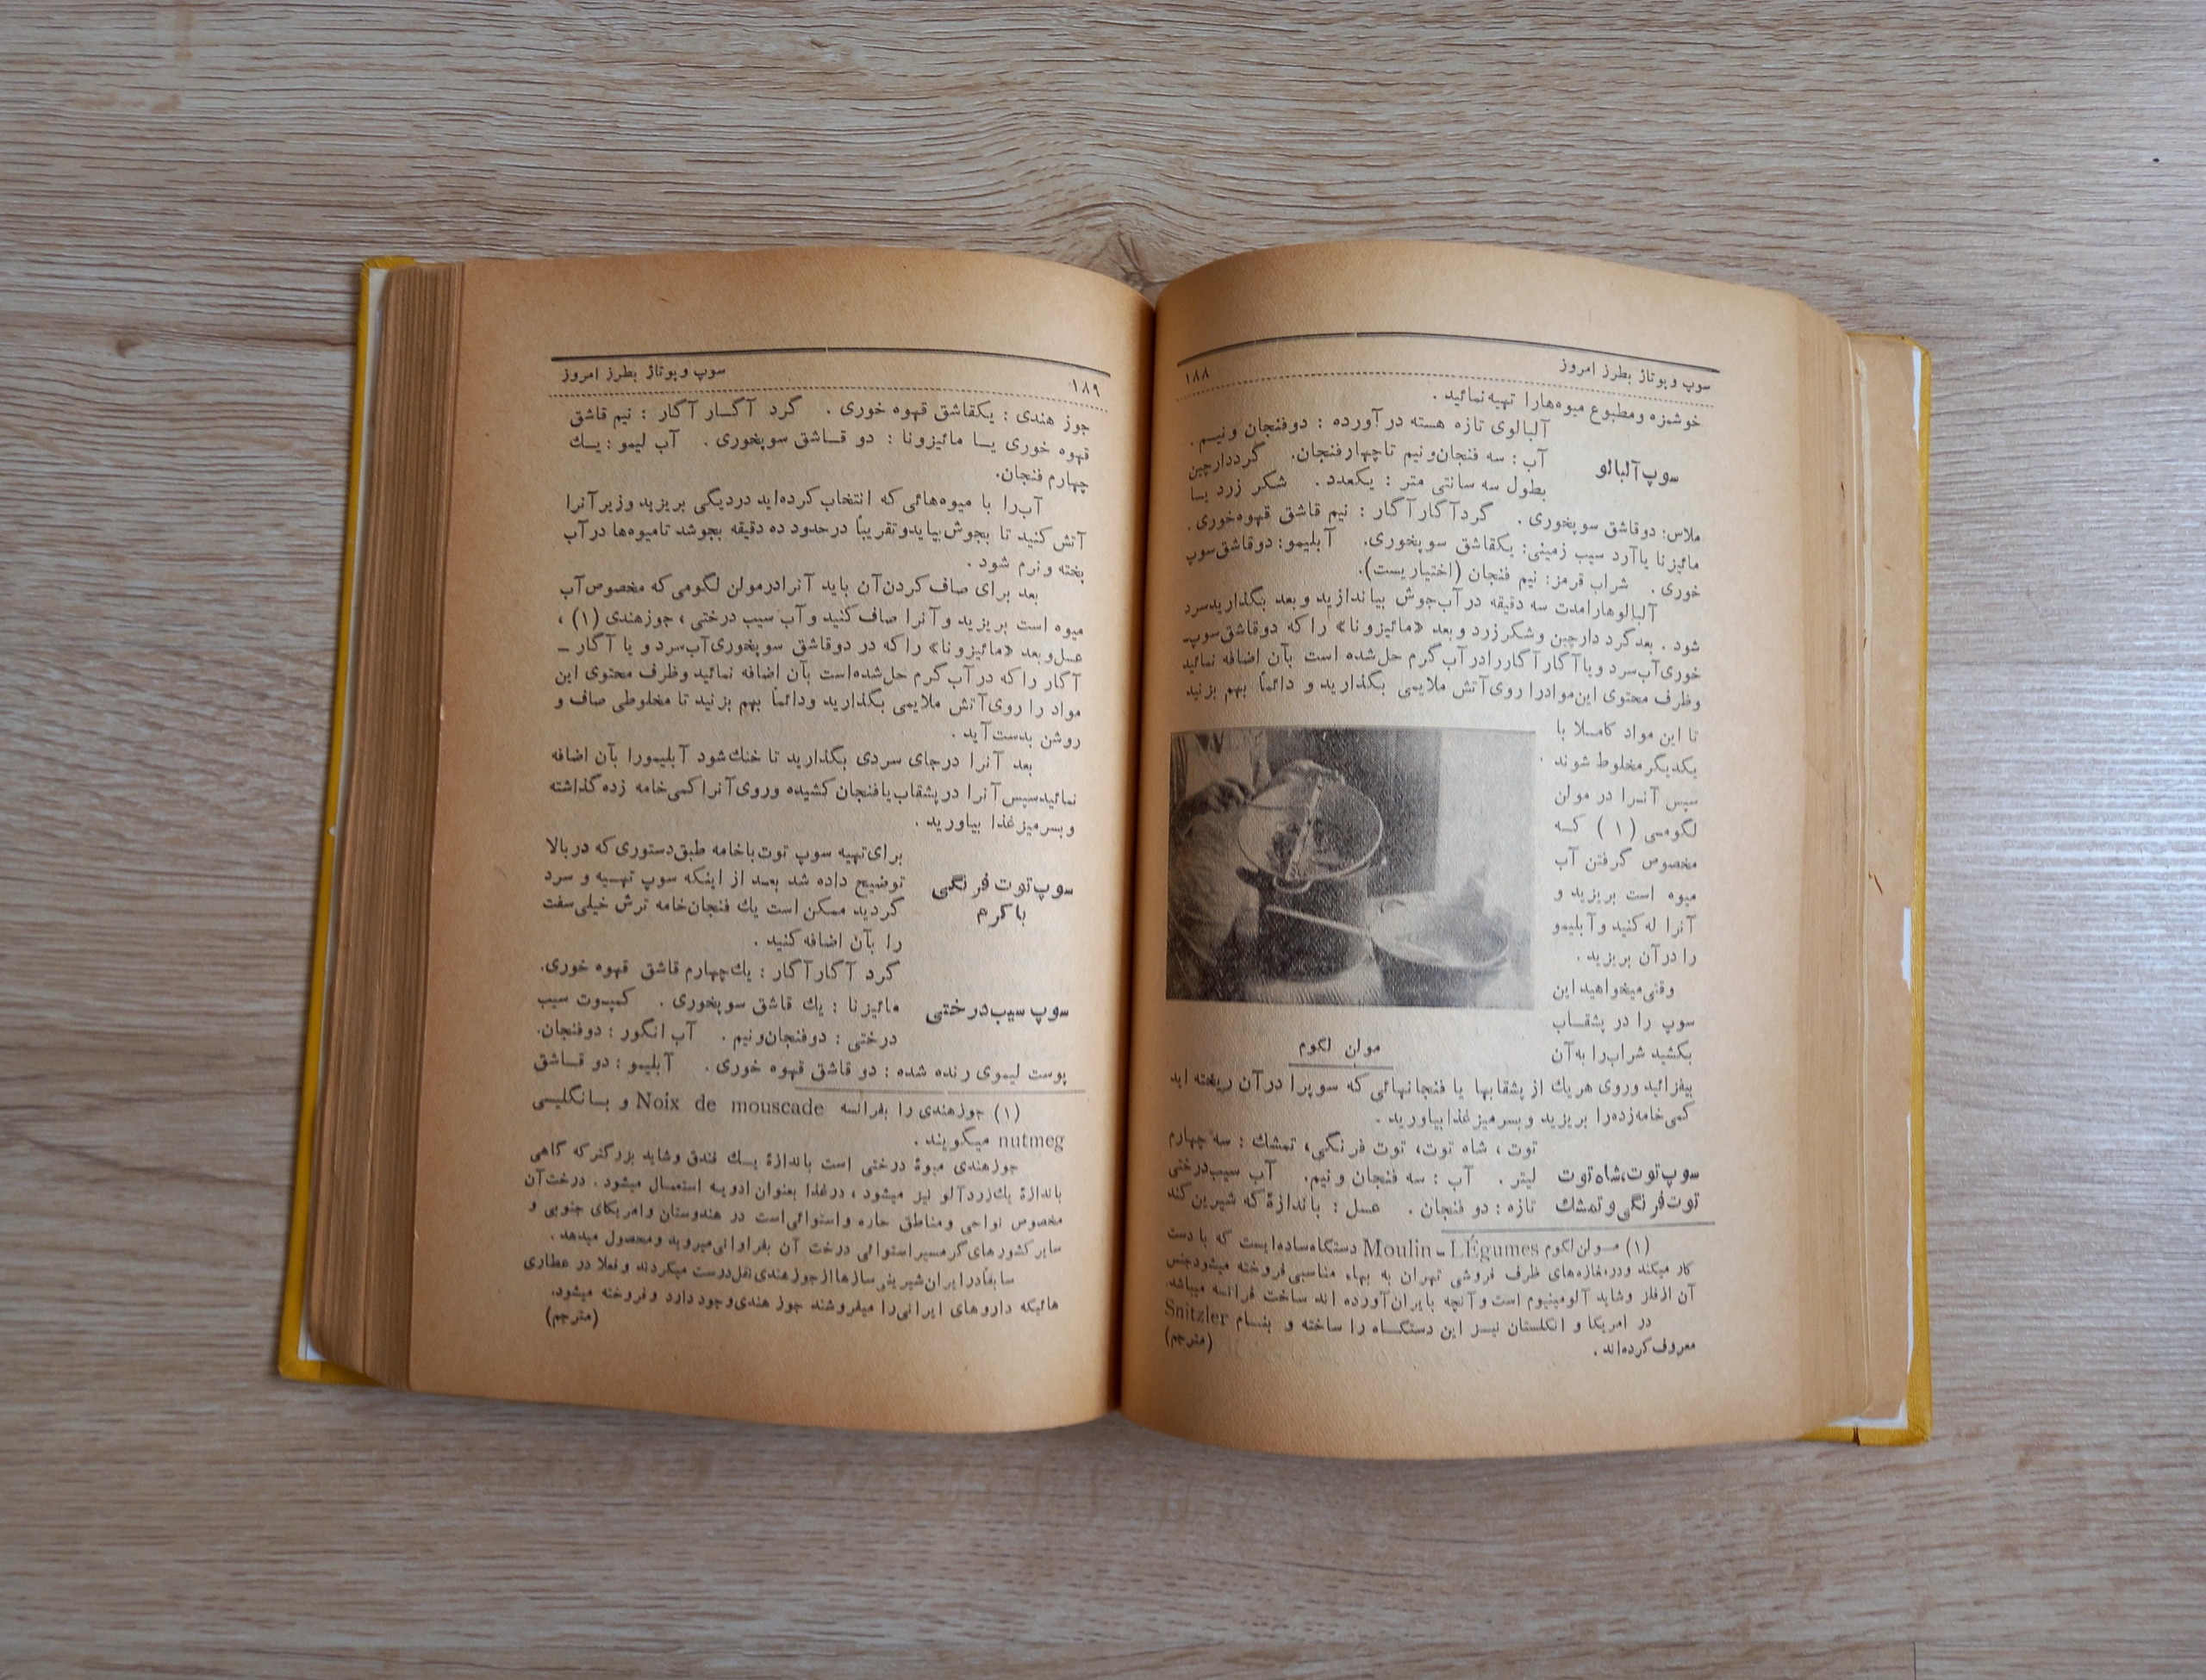 سوپ و پوتاژ بطرز امروز
۱۸۸
خوشمزه ومطبوع میوه‌هارا تهیه‌نمائید .
سوپ‌آلبالو
آلبالوی تازه هسته درآورده : دوفنجان ونیـم .
آب : سه فنجان‌ونیم تاچهارفنجان. گرددارچین
بطول سه سانتی متر : یکعدد . شکر زرد یـا
ملاس: دوقاشق سوپخوری . گردآگارآگار : نیم قاشق قهوه‌خوری.
مائیزنا یاآرد سیب زمینی: یکقاشق سوپخوری. آبلیمو: دوقاشق‌سوپ
خوری . شراب قرمز: نیم فنجان (اختیاریست).
آلبالوهارامدت سه دقیقه درآب‌جوش بیاندازید وبعد بگذاریدسرد
شود . بعدگرد دارچین وشکرزرد وبعد «مائیزونا» راکه دوقاشق‌سوپ‌ـ
خوری‌آب‌سرد ویاآگارآگاررادرآب‌گرم حل‌شده است بآن اضافه نمائید
وظرف محتوی این‌موادرا روی‌آتش ملایمی بگذارید و دائماً بهم بزنید
تا این مواد کامـلا با
یکدیگرمخلوط شوند .
سپس آنـرا در مولن
لگومـی (۱) کـه
مخصوص گرفتن آب
میوه است بریزید و
آنرا له‌کنید وآبلیمو
را درآن بریزید .
وقتی‌میخواهیداین
سوپ را در بشقـاب
بکشید شراب‌را به‌آن
مولن لگوم
بیفزائید وروی هریك از بشقابها یا فنجانهائی که سوپرا درآن ریخته اید
کمی‌خامه‌زده‌را بریزید وبسرمیزغذابیاورید .
سوپ‌توت،شاه‌توت
توت‌فرنگی‌وتمشك
توت ، شاه توت، توت فرنگی، تمشك : سه چهارم
لیتر . آب : سه فنجان ونیم. آب سیب‌درختی
تازه : دو فنجان . عسل : باندازهٔ‌که شیرین کند
(۱) مـولن‌لگوم Moulin - LÉgumes دستگاه‌ساده‌ایست که بادست
کار میکند ودرمغازه‌های ظرف فروشی تهران به بهاء مناسبی‌فروخته میشودجنس
آن ازفلز وشاید آلومینیوم است‌وآنچه بایران‌آورده اند ساخت فرانسه میباشد.
در امریکا و انگلستان نیـز این دستگـاه را ساخته و بنـام Snitzler
معروف‌کرده‌اند . (مترجم)
۱۸۹
سوپ و پوتاژ بطرز امروز
جوز هندی : یکقاشق قهوه خوری . گرد آگـار آگار : نیم قاشق
قهوه خوری یـا مائیزونا : دو قـاشق سوپخوری . آب لیمو : یـك
چهارم فنجان.
آب‌را با میوه‌هائی که انتخاب کرده‌اید دردیگی بریزید وزیرآنرا
آتش کنید تا بجوش‌بیایدوتقریباً درحدود ده دقیقه بجوشد تامیوه‌ها درآب
پخته ونرم شود .
بعد برای صاف کردن‌آن باید آنرادرمولن لگومی‌که مخصوص‌آب
میوه است بریزید وآنرا صاف کنید وآب سیب درختی ، جوزهندی (۱) ،
عسل‌وبعد «مائیزونا» راکه در دوقاشق سوپخوری‌آب‌سرد و یا آگار ـ
آگار را که درآب گرم حل‌شده‌است بآن اضافه نمائید وظرف محتوی این
مواد را روی‌آتش ملایمی بگذارید ودائماً بهم بزنید تا مخلوطی صاف و
روشن بدست‌آید .
بعد آنرا درجای سردی بگذارید تا خنك‌شود آبلیمورا بآن اضافه
نمائیدسپس‌آنرا دربشقاب‌یافنجان کشیده وروی‌آنراکمی‌خامه زده گذاشته
وبسرمیزغذا بیاورید .
سوپ‌توت فرنگی
باکرم
برای‌تهیه سوپ توت‌باخامه طبق‌دستوری‌که دربالا
توضیح داده شد بعـد از اینکه سوپ تهـیه و سرد
گردید ممکن است یك فنجان‌خامه ترش خیلی‌سفت
را بآن اضافه‌کنید .
سوپ سیب‌درختی
گرد آگارآگار : یك‌چهارم قاشق قهوه خوری.
مائیزنا : یك قاشق سوپخوری . کمپـوت سیب
درختی : دوفنجان‌ونیم . آب انگور : دوفنجان.
پوست لیموی رنده شده : دو قاشق قهوه خوری . آبلیمو : دو قـاشق
(۱) جوزهندی را بفرانسه Noix de mouscade و بـانگلیسی
nutmeg میگویند .
جوزهندی میوهٔ درختی است باندازهٔ یـك فندق وشاید بزرگترکه گاهی
باندازهٔ یك‌زردآلو نیز میشود ، درغذا بعنوان ادویـه استعمـال میشود . درخت‌آن
مخصوص نواحی ومناطق حاره واستوائی‌است در هندوستان وامریکای جنوبی و
سایرکشورهای‌گرمسیراستوائی درخت آن بفراوانی‌میروید ومحصول میدهد .
سابقاًدرایران‌شیرینی‌سازهاازجوزهندی‌نقل‌درست میکردند وفعلا در عطاری
هائیکه داروهای ایرانی‌را میفروشند جوز هندی‌وجوددارد وفروخته میشود.
(مترجم)